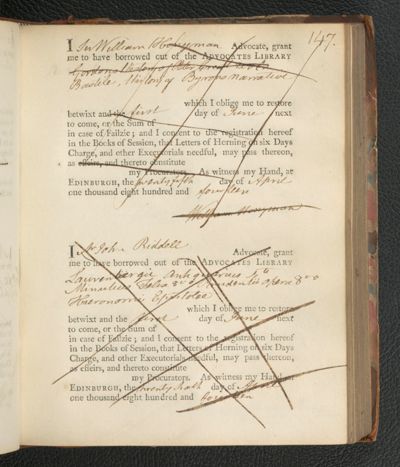 147.
I Sr William Honyman Advocate, grant
me to have borrowed out of the ADVOCATES LIBRARY
Gordons History of Peter the Great
Bastile, History of Byrons narrative
which I oblige me to restore
betwixt and the first day of June next
to come, or the Sum of
in case of Failzie; and I consent to the registration hereof
in the Books of Session, that Letters of Horning on six Days
Charge, and other Executorials needful, may pass thereon,
as effeirs, and thereto constitute
my Procurators. As witness my Hand, at
EDINBURGH, the twenty fifth day of April
one thousand eight hundred and fourteen
William Honyman
I Mr John Riddell Advocate, grant
me to have borrowed out of the ADVOCATES LIBRARY
Laurenbergii Antiquarius 4to
Minucius Felix 8vo Prudentii opera 8vo
Hieronomi Epistolae
which I oblige me to restore
betwixt and the first day of June next
to come, or the Sum of
in case of Failzie; and I consent to the registration hereof
in the Books of Session, that Letters of Horning on six Days
Charge, and other Executorials needful, may pass thereon,
as effeirs, and thereto constitute
my Procurators. As witness my Hand, at
EDINBURGH, the twenty sixth day of April
one thousand eight hundred and fourteen